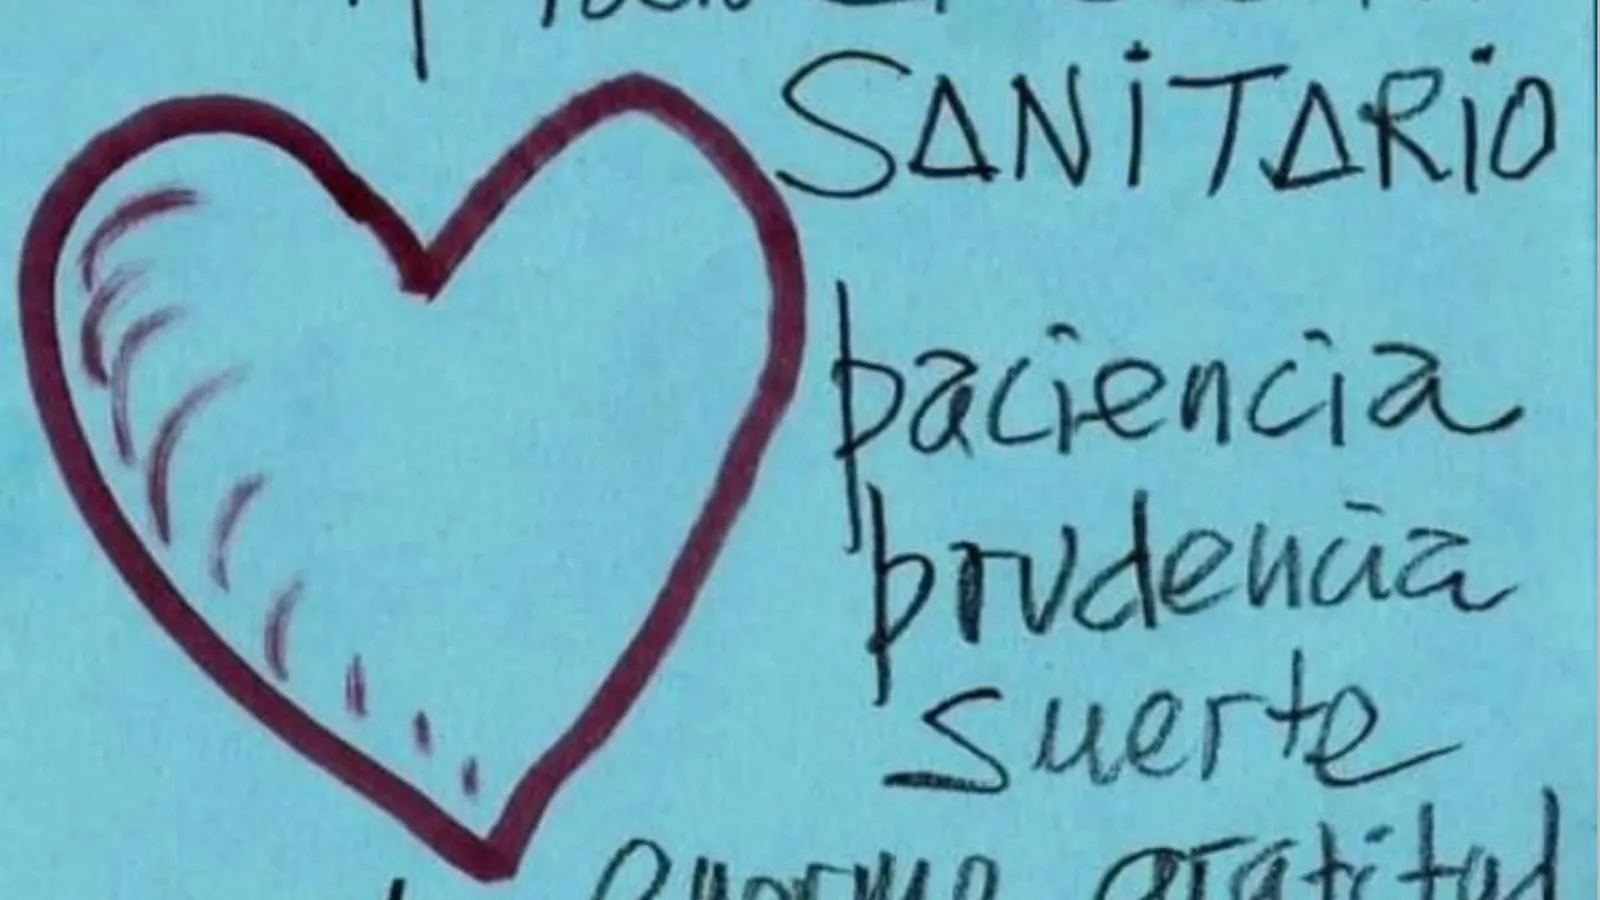 y todo el
SANITARIO
paciencia
prudencia
suerte
enorme gratitud